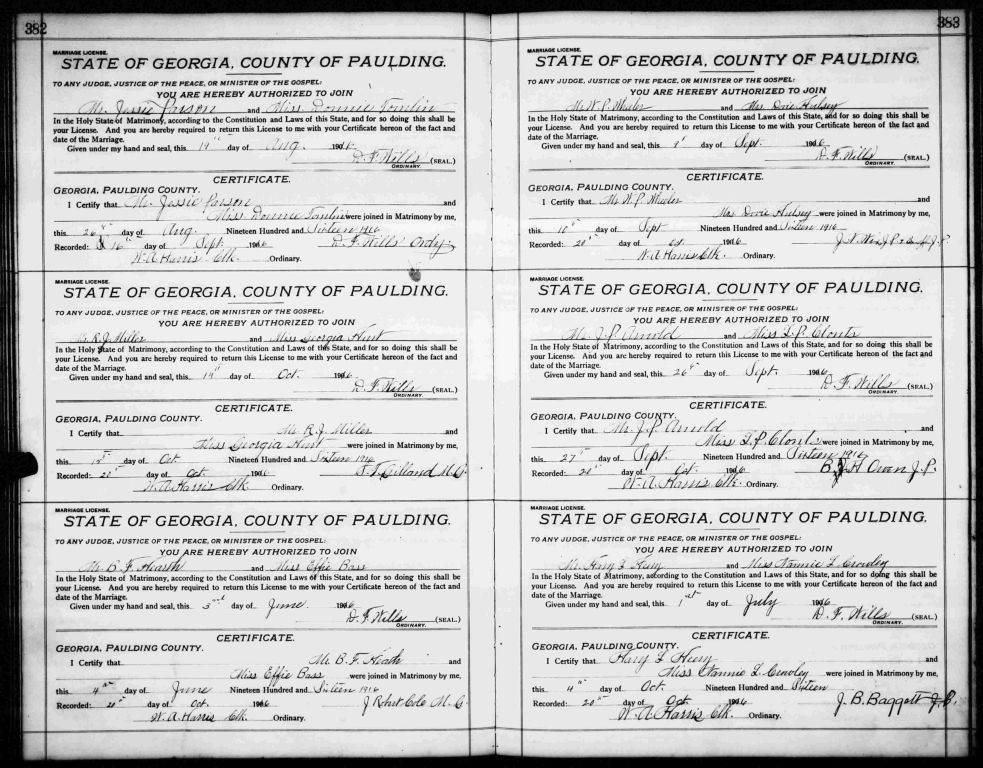 382
MARRIAGE LICENSE.
STATE OF GEORGIA, COUNTY OF PAULDING.
TO ANY JUDGE, JUSTICE OF THE PEACE, OR MINISTER OF THE GOSPEL:
YOU ARE HEREBY AUTHORIZED TO JOIN
Mr. Jessie Parson and Miss Donnie Tomlin
In the Holy State of Matrimony, according to the Constitution and Laws of this State, and for so doing this shall be
your License. And you are hereby required to return this License to me with your Certificate hereon of the fact and
date of the Marriage.
Given under my hand and seal, this 19th day of Aug. 1916.
D. F. Wills (SEAL.)
ORDINARY.
CERTIFICATE.
GEORGIA, PAULDING COUNTY.
I Certify that Mr. Jessie Parson and
Miss Donnie Tomlin were joined in Matrimony by me,
this 26th day of Aug. Nineteen Hundred and Sixteen 1916
Recorded: 16th day of Sept 1916 D. F. Wills Ordy
W. A. Harris Clk. Ordinary.
MARRIAGE LICENSE.
STATE OF GEORGIA, COUNTY OF PAULDING.
TO ANY JUDGE, JUSTICE OF THE PEACE, OR MINISTER OF THE GOSPEL:
YOU ARE HEREBY AUTHORIZED TO JOIN
Mr. R. J. Miller and Miss Georgia Hunt
In the Holy State of Matrimony, according to the Constitution and Laws of this State, and for so doing this shall be
your License. And you are hereby required to return this License to me with your Certificate hereon of the fact and
date of the Marriage.
Given under my hand and seal, this day of Oct. 1916
D. F. Wills (SEAL.)
ORDINARY.
CERTIFICATE.
GEORGIA, PAULDING COUNTY.
I Certify that Mr. R. J. Miller and
Miss Georgia Hunt were joined in Matrimony by me,
this day of Oct Nineteen Hundred and Sixteen 1916
Recorded: 20th day of Oct. 1916 M. G.
W. A. Harris Clk. Ordinary.
MARRIAGE LICENSE.
STATE OF GEORGIA, COUNTY OF PAULDING.
TO ANY JUDGE, JUSTICE OF THE PEACE, OR MINISTER OF THE GOSPEL:
YOU ARE HEREBY AUTHORIZED TO JOIN
Mr. B. F. Hearth and Miss Effie Bass
In the Holy State of Matrimony, according to the Constitution and Laws of this State, and for so doing this shall be
your License. And you are hereby required to return this License to me with your Certificate hereon of the fact and
date of the Marriage.
Given under my hand and seal, this 3rd day of June 1916
D. F. Wills (SEAL.)
ORDINARY.
CERTIFICATE.
GEORGIA, PAULDING COUNTY.
I Certify that Mr. B. F. Heath and
Miss Effie Bass were joined in Matrimony by me,
this 4th day of June Nineteen Hundred and Sixteen 1916
Recorded: 20th day of Oct. 1916 J Robert Cole M. G.
W. A. Harris Clk. Ordinary.
383
MARRIAGE LICENSE.
STATE OF GEORGIA, COUNTY OF PAULDING.
TO ANY JUDGE, JUSTICE OF THE PEACE, OR MINISTER OF THE GOSPEL:
YOU ARE HEREBY AUTHORIZED TO JOIN
Mr. W. P. Wheeler and Mrs. Dovie Hulsey
In the Holy State of Matrimony, according to the Constitution and Laws of this State, and for so doing this shall be
your License. And you are hereby required to return this License to me with your Certificate hereon of the fact and
date of the Marriage.
Given under my hand and seal, this 9th day of Sept. 1916
D. F. Wills (SEAL.)
ORDINARY.
CERTIFICATE.
GEORGIA, PAULDING COUNTY.
I Certify that Mr. W. P. Wheeler and
Mrs Dovie Hulsey were joined in Matrimony by me,
this 10th day of Sept Nineteen Hundred and Sixteen 1916
Recorded: 20th day of Oct. 1916 J. P.
W. A. Harris Clk. Ordinary.
MARRIAGE LICENSE.
STATE OF GEORGIA, COUNTY OF PAULDING.
TO ANY JUDGE, JUSTICE OF THE PEACE, OR MINISTER OF THE GOSPEL:
YOU ARE HEREBY AUTHORIZED TO JOIN
Mr. J. P. Arnold and Miss P. Clonts
In the Holy State of Matrimony, according to the Constitution and Laws of this State, and for so doing this shall be
your License. And you are hereby required to return this License to me with your Certificate hereon of the fact and
date of the Marriage.
Given under my hand and seal, this 26th day of Sept. 1916
D. F. Wills (SEAL.)
ORDINARY.
CERTIFICATE.
GEORGIA, PAULDING COUNTY.
I Certify that Mr. J. P. Arnold and
Miss P. Clonts were joined in Matrimony by me,
this 27th day of Sept. Nineteen Hundred and Sixteen 1916
Recorded: 20th day of Oct. 1916 Owen J. P.
W. A. Harris Clk. Ordinary.
MARRIAGE LICENSE.
STATE OF GEORGIA, COUNTY OF PAULDING.
TO ANY JUDGE, JUSTICE OF THE PEACE, OR MINISTER OF THE GOSPEL:
YOU ARE HEREBY AUTHORIZED TO JOIN
Mr. and Miss Nannie L
In the Holy State of Matrimony, according to the Constitution and Laws of this State, and for so doing this shall be
your License. And you are hereby required to return this License to me with your Certificate hereon of the fact and
date of the Marriage.
Given under my hand and seal, this 1st day of July 1916
D. F. Wills (SEAL.)
ORDINARY.
CERTIFICATE.
GEORGIA, PAULDING COUNTY.
I Certify that and
Miss Nannie L. were joined in Matrimony by me,
this 4th day of Oct. Nineteen Hundred and Sixteen
Recorded: 20th day of Oct. 1916 J. B. Baggett J. P.
W. A. Harris Clk. Ordinary.